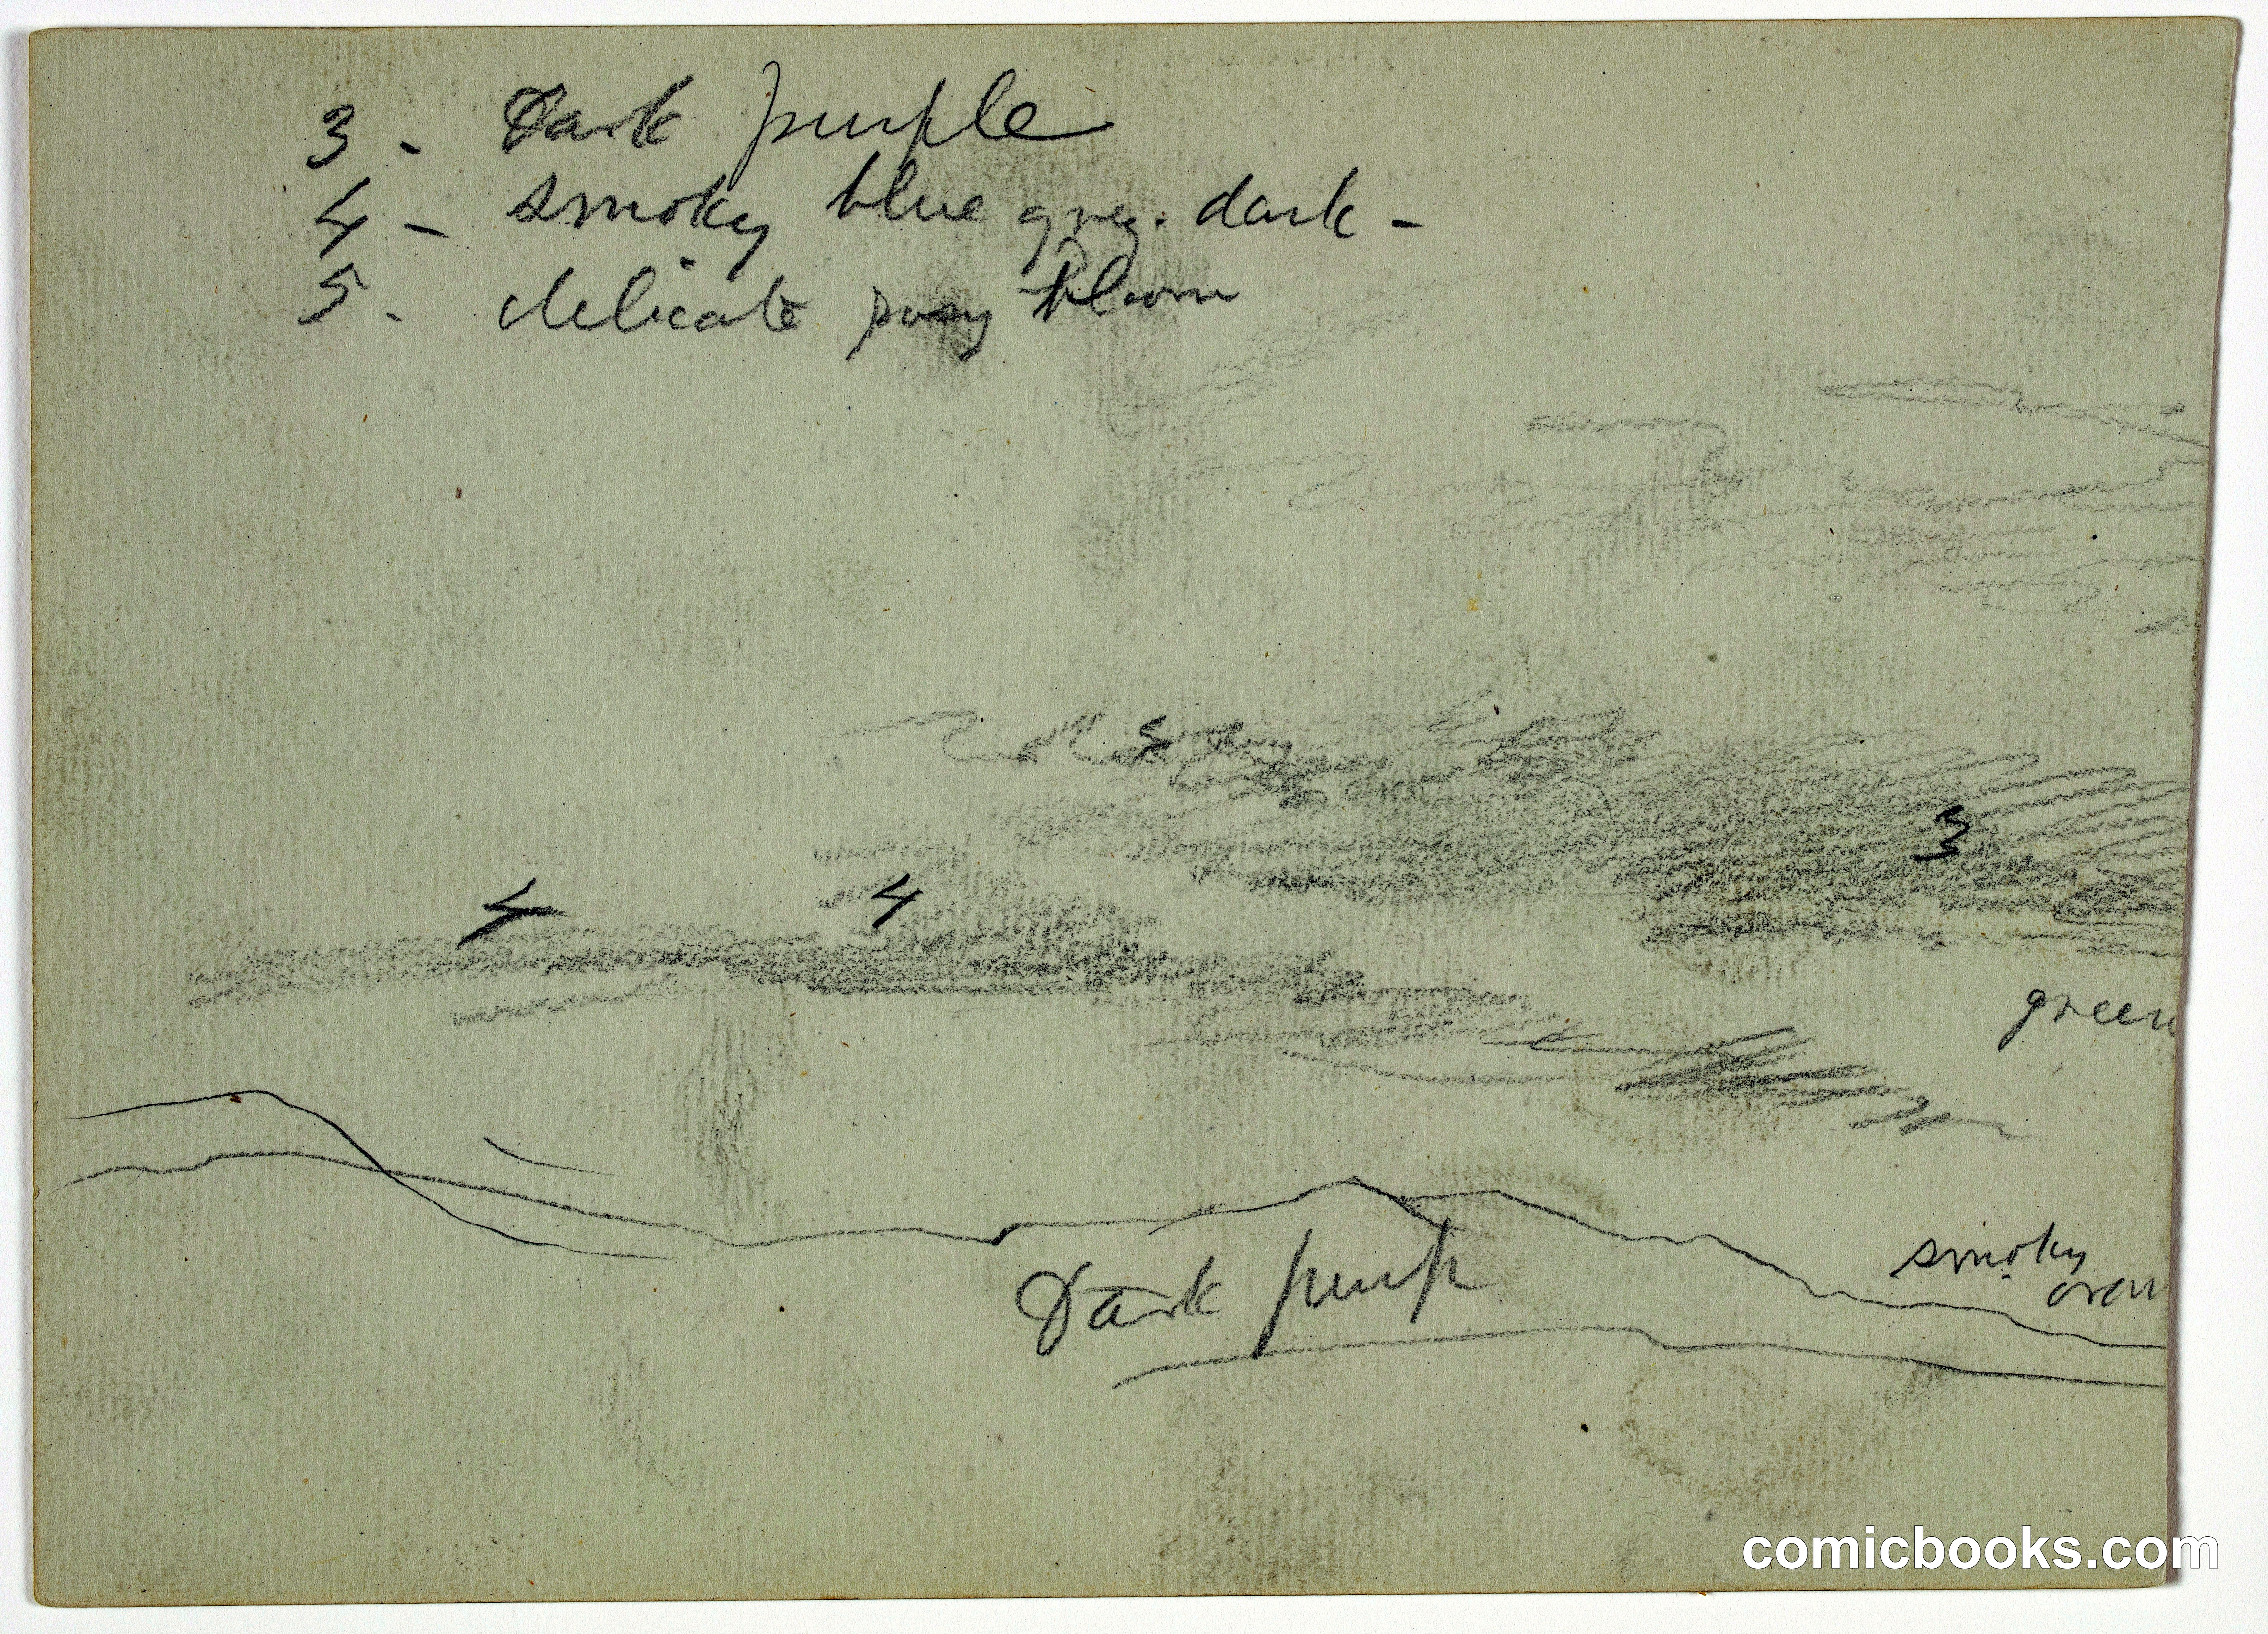 3 - Dark purple
4 - smoky blue grey. dark -
5 - delicate bloom
5
3
4 4
green
Dark purp
smoky
oran
comicbooks.com